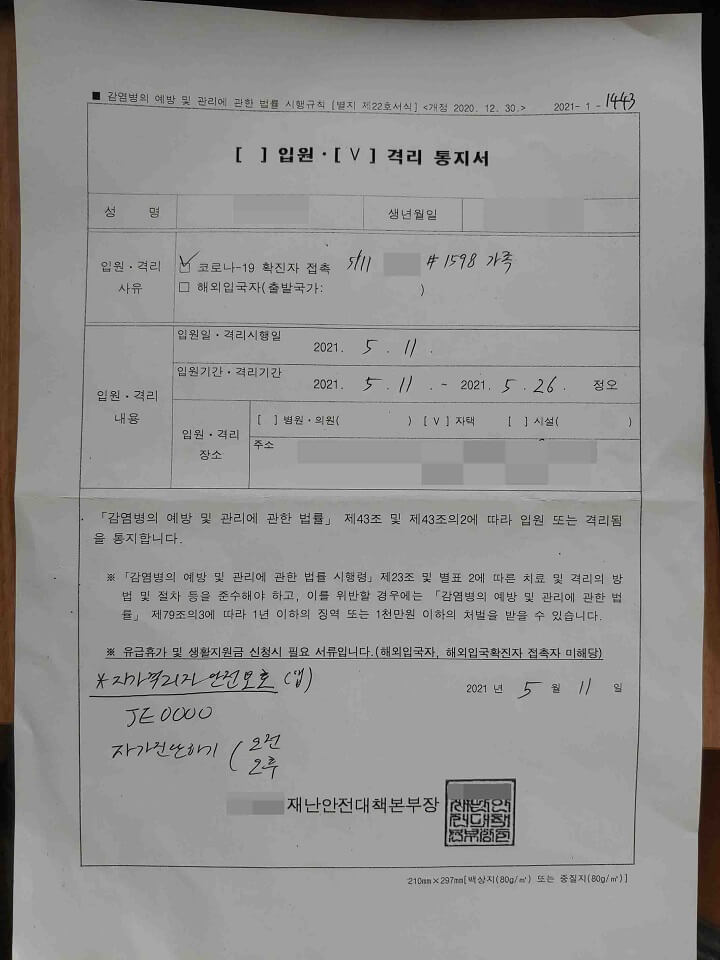 ■ 감염병의 예방 및 관리에 관한 법률 시행규칙 [별지 제22호서식] <개정 2020. 12. 30.> 2021- 1 - 1443
[ ] 입원 · [ V ] 격리 통지서
성 명 생년월일
입원 · 격리 사유
☑ 코로나-19 확진자 접촉 5/11 #1598 가족
□ 해외입국자(출발국가: )
입원 · 격리 내용
입원일 · 격리시행일
2021. 5 . 11 .
입원기간 · 격리기간
2021. 5 . 11 . ~ 2021. 5 . 26 . 정오
입원 · 격리 장소
[ ] 병원 · 의원( ) [ V ] 자택 [ ] 시설( )
주소
「감염병의 예방 및 관리에 관한 법률」 제43조 및 제43조의2에 따라 입원 또는 격리됨
을 통지합니다.
※「감염병의 예방 및 관리에 관한 법률 시행령」제23조 및 별표 2에 따른 치료 및 격리의 방
법 및 절차 등을 준수해야 하고, 이를 위반할 경우에는 「감염병의 예방 및 관리에 관한 법
률」 제79조의3에 따라 1년 이하의 징역 또는 1천만원 이하의 처벌을 받을 수 있습니다.
※ 유급휴가 및 생활지원금 신청시 필요 서류입니다.(해외입국자, 해외입국확진자 접촉자 미해당)
*자가격리자 안전보호 (앱)
2021 년 5 월 11 일
JE0000
자가진단하기 ( 오전
오후
재난안전대책본부장
210mm×297mm[백상지(80g/㎡) 또는 중질지(80g/㎡)]